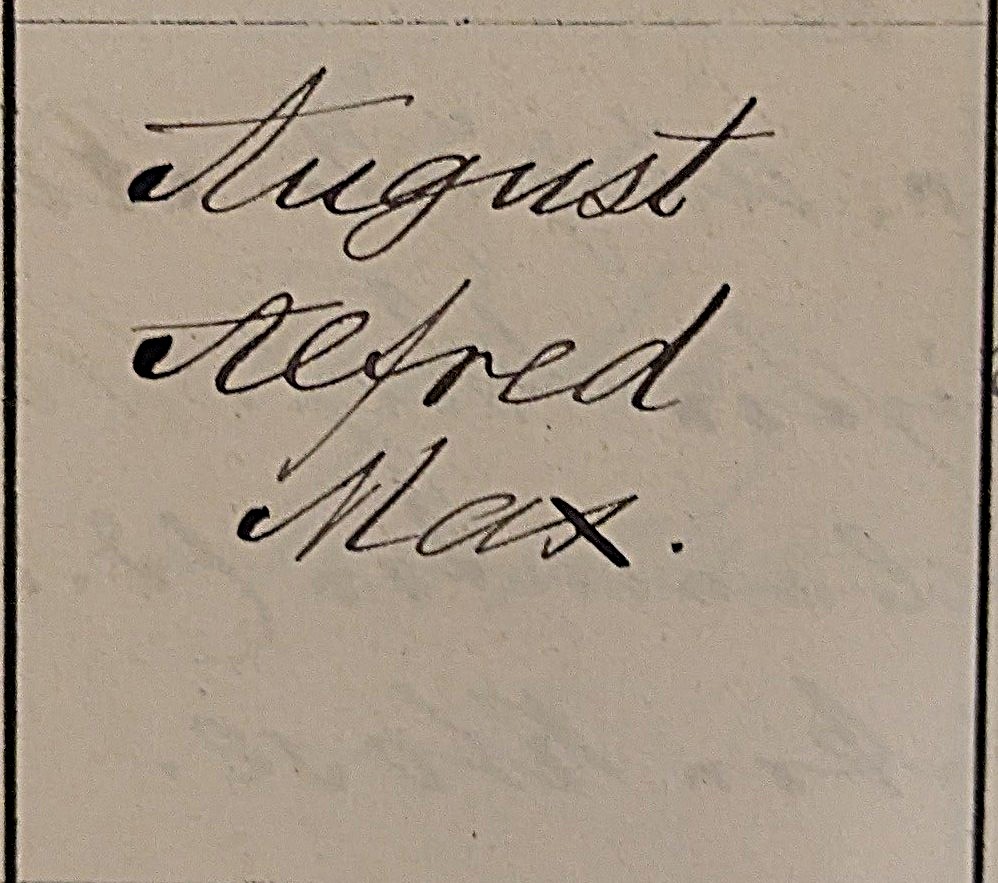 August
Alfred
Max.